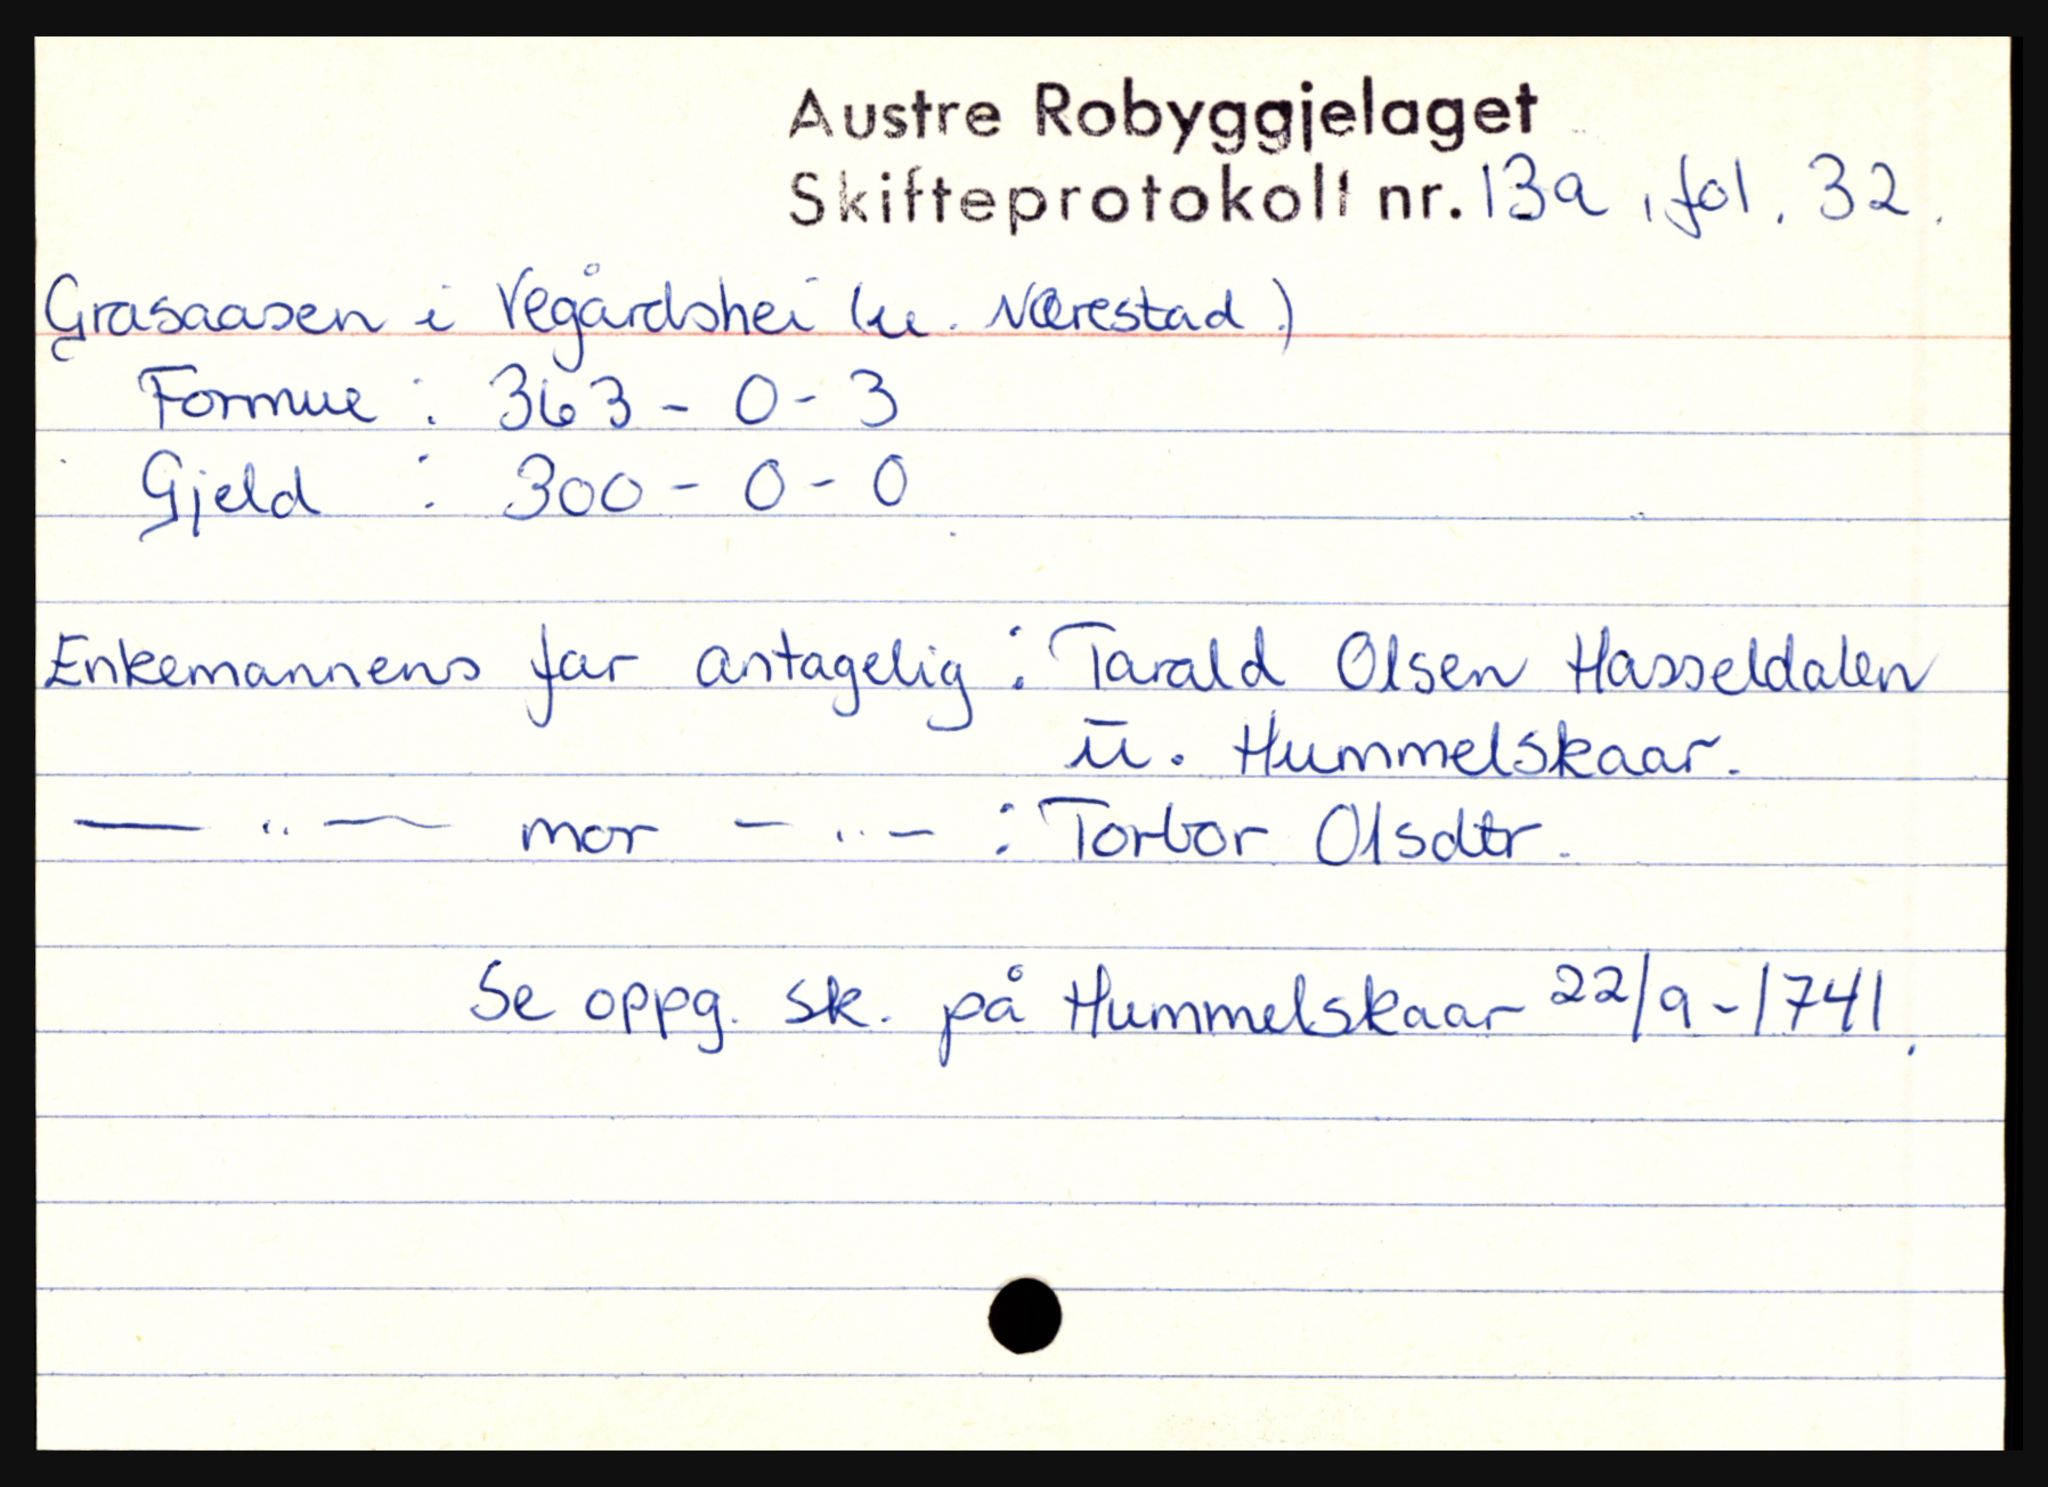 Austre Robyggjelaget
Skifteprotokoll nr. 13a, fol. 32.
Grasaasen i Vegårdshei (u. Nærestad.)
Formue : 363 - 0 - 3
Gjeld : 300 - 0 - 0
Enkemannens far antagelig : Tarald Olsen Hasseldalen
u. Hummelskaar.
— " — mor — " — : Torbor Olsdtr.
Se oppg. sk. på Hummelskaar 22/9 - 1741.